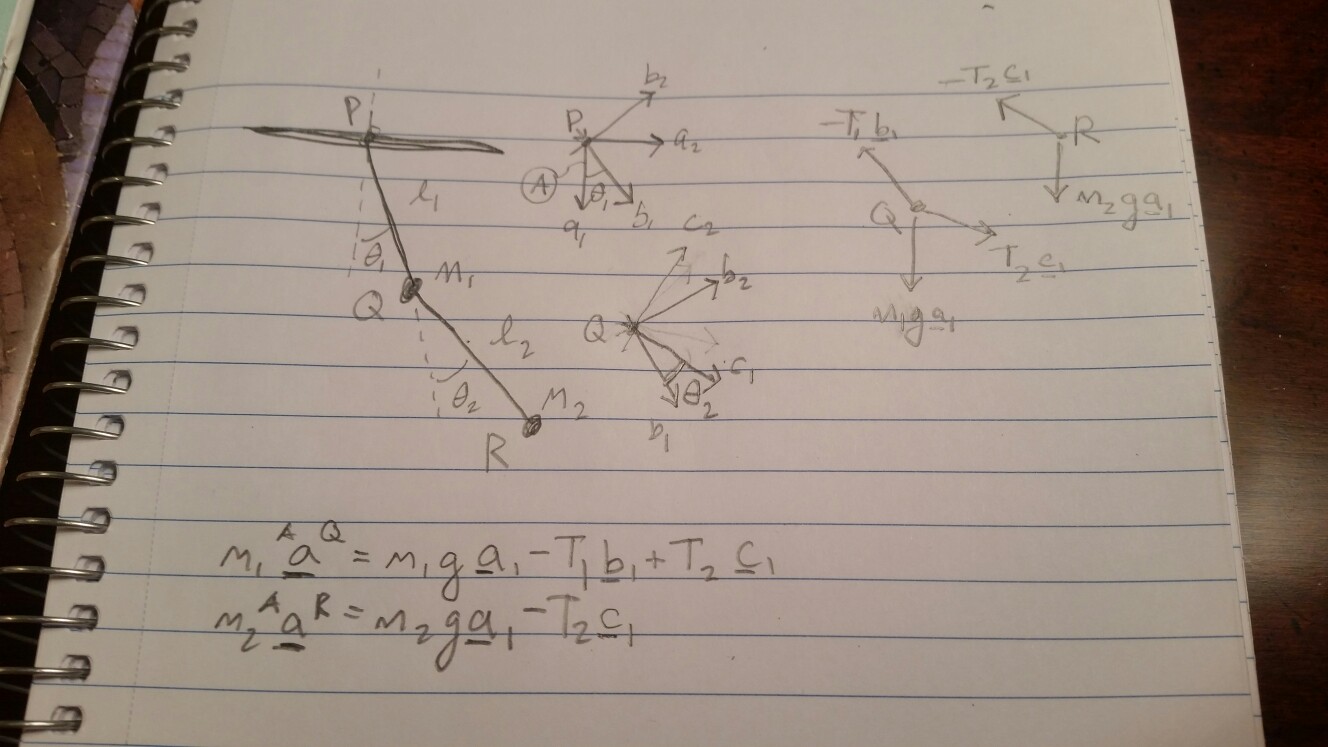 P
l₁
θ₁
m₁
Q
l₂
θ₂
m₂
R
b₂
P
a₂
A
θ₁
a₁
b₁
c₂
b₂
Q
c₁
θ₂
b₁
-T₁ b₁
Q
T₂ c₁
m₁ g a₁
-T₂ c₁
R
m₂ g a₁
m₁ ᴬa^Q = m₁ g a₁ - T₁ b₁ + T₂ c₁
m₂ ᴬa^R = m₂ g a₁ - T₂ c₁